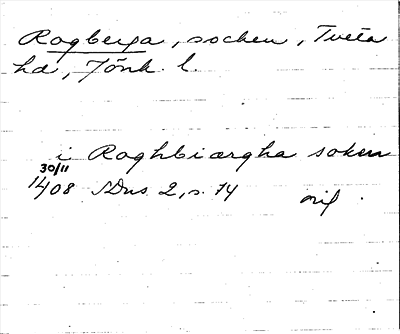 Rogberga, socken, Tveta
hd, Jönk. l.
i Roghbiærgha sokn
30/11
1408 SDns 2, s. 14